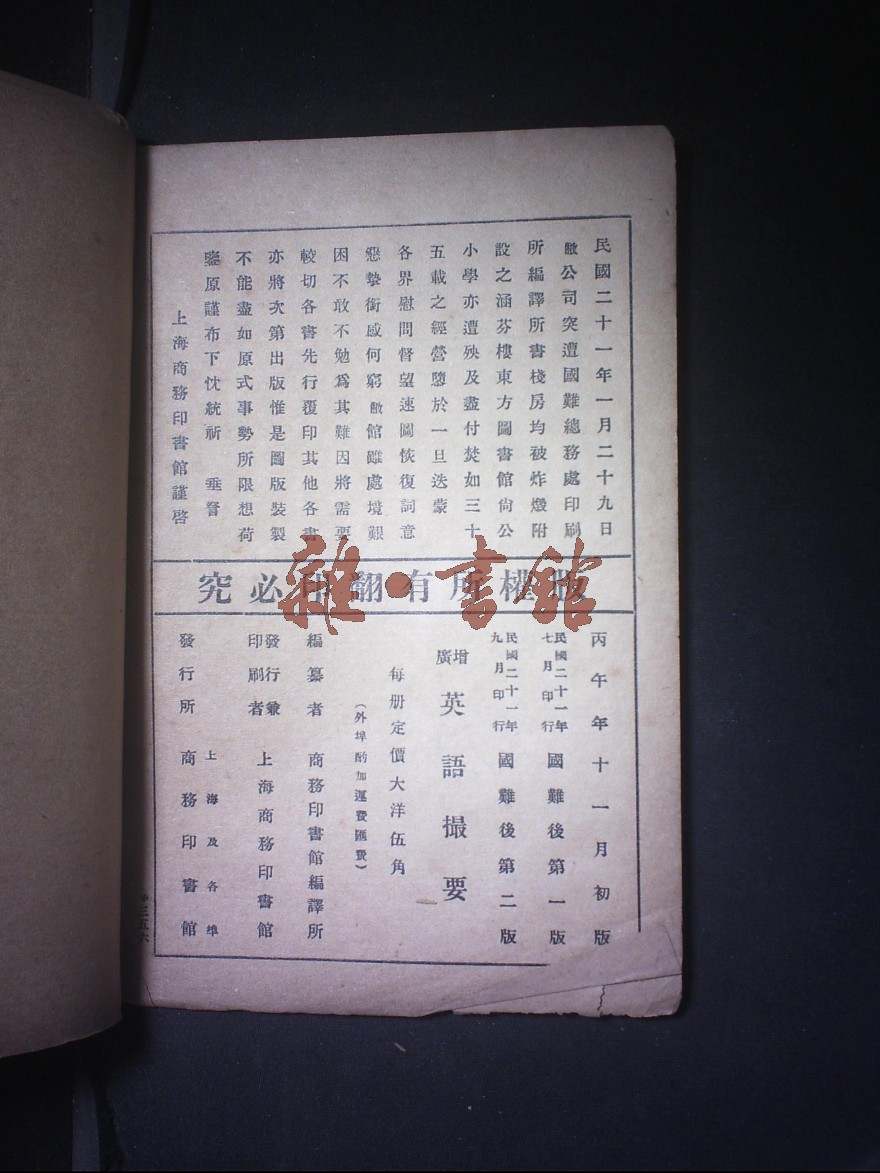 民國二十一年一月二十九日
敝公司突遭國難總務處印刷
所編譯所書棧房均被炸燬附
設之涵芬樓東方圖書館尙公
小學亦遭殃及盡付焚如三十
五載之經營隳於一旦迭蒙
各界慰問督望速圖恢復詞意
懇摯銜感何窮敝館雖處境艱
困不敢不勉爲其難因將需要
較切各書先行覆印其他各書
亦將次第出版惟是圖版裝製
不能盡如原式事勢所限想荷
鑒原謹布下忱統祈 垂詧
上海商務印書館謹啓
版權所有翻印必究
雜·書館
丙午年十一月初版
民國二十一年七月印行 國難後第一版
民國二十一年九月印行 國難後第二版
增廣 英語撮要
每册定價大洋伍角
(外埠酌加運費匯費)
編纂者 商務印書館編譯所
發行兼印刷者 上海商務印書館
發行所 上海及各埠 商務印書館
三五六